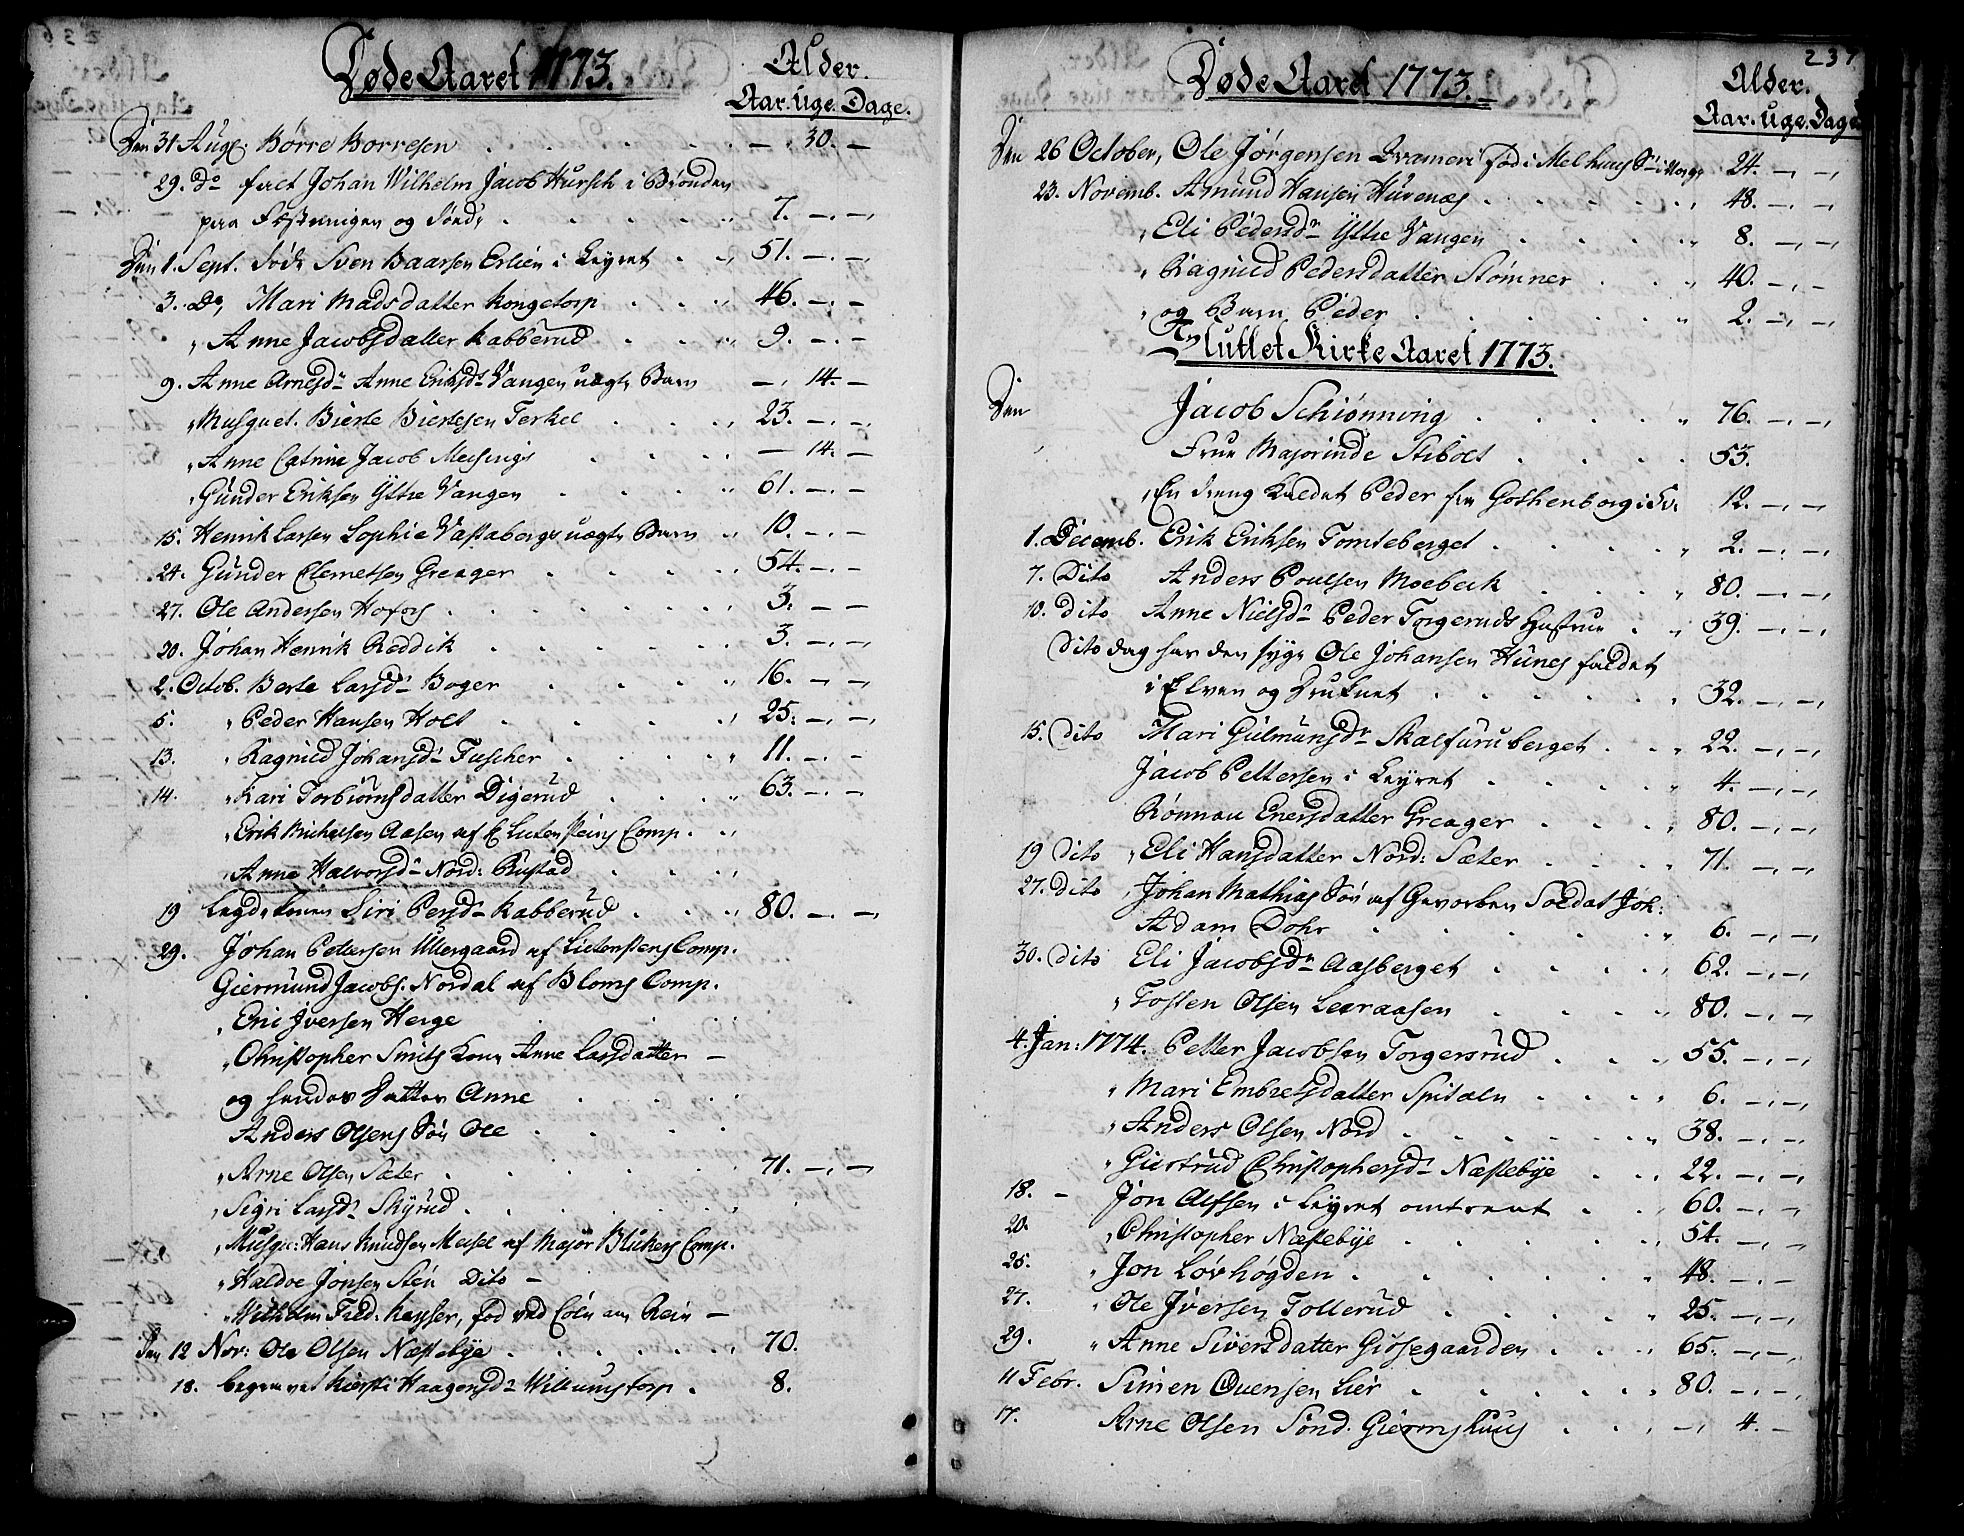 Døde Aaret 1773.
Alder.
Aar. Uge. Dage.
Den 31 Aug. Børre Borresen — 30. —
29. Do fact Johan Wilhelm Jacob Hursch i Brønden
paa Festningen og død, 7. — —
Den 1. Sept. døde Sven Baarsen Erlien i Leyret 51. — —
3. Do, Mari Madsdatter Kongetorp 46. — —
" Anne Jacobsdatter Kabberud 9. — —
9. Anne Arnesdr Anne Eriksdr Vangen uægte Barn — 14. —
" Musquet. Bierte Biertesen Terkel 23. — —
" Anne Catrine Jacob Meisings — 14. —
" Gunder Eriksen Yttre Vangen 61. — —
15. Henrik Larsen Sophie Vastabergs uægte Barn 10. — —
24. Gunder Clemetsen Greager 54. — —
27. Ole Andersen Hofoss 3. — —
20. Johan Henrik Reddik 3. — —
2. Octob. Berte Larsdr Boger 16. — —
5. " Peder Hansen Holt 25. — —
13. " Ragnild Johansdr Fuscher 11. — —
14. " Kari Torbiørnsdatter Digerud 63. — —
" Erik Michelsen Aasen af Comp.
" Anne Halvorsdr Nord: Rustad
19 Legds konen Siri Persdr Kabberud 80. — —
29. Johan Pettersen Ullergaard af Comp.
Giermund Jacobs. Nordal af Bloms Comp.
" Eric Iversen Herge
" Christopher Smits Kone Anne Larsdatter —
og hendes Datter Anne
Anders Olsens Søn Ole
" Arne Olsen Sæter 71. — —
" Sigri Larsdr Skÿrud
" Musqu: Hans Knudsen Meisel af Major Blichers Comp.
" Haldoe Jonsen Steu Dito —
" Wilhelm Fred: Keyser, fød ved Cøln am Rein —
Den 12 Nov: Ole Olsen Næstebÿe 70.
18. begravet Kiersti Haagensdr Wilkumstorp 8.
237
Døde Aaret 1773.
Alder.
Aar. Uge. Dage
Den 26 October, Ole Jørgensen fød i Melhuus i Norge 24. — —
23. Novemb. Amund Hansen Huvenæs 48. — —
" Eli Pedersdr Yttre Vangen 8. — —
" Ragnild Pedersdatter Stømner 40. — —
" og Barn Peder 2. — —
Sluttet Kirke Aaret 1773.
Den Jacob Schiønning 76. — —
Frue Majorinde Stibolt 53.
" En dreng kaldet Peder fra Gothenborg i Sv. 12. — —
1. Decemb. Erik Eriksen Tomteberget 2. — —
7. Dito Anders Poulsen Moebeck 80. — —
10. dito Anne Nielsdr Peder Torgeruds Hustrue 39. — —
Dito dag har den syge Ole Johansen Hunes faldet
i Elven og Druknet 32. — —
15. dito Mari Gulmunsdr Skalfuruberget 22. — —
Jacob Pettersen i Leyret 4. — —
Rønnau Enersdatter Greager 80. — —
19 dito " Eli Hansdatter Nord: Sæter 71. — —
27. dito " Johan Mathias Søn af Gevorben Soldat Joh:
Adam Dohr 6. — —
30. dito Eli Jacobsdr Aasberget 62. — —
" Tosten Olsen Leeraasen 80. — —
4. Jan: 1774. Petter Jacobsen Torgersrud 55. — —
" Mari Embretsdatter Spitalen 6. — —
" Anders Olsen Nord 38. — —
" Giertrud Christophersdr Næstebÿe 22. — —
18. — Jon Alfsen i Leyret omtrent 60. — —
20. " Christopher Næstebÿe 54. — —
25. " Jon Løvhøgden 48. — —
27. " Ole Iversen Tollerud 25. — —
29. " Anne Siversdatter Giøsegaarden 65. — —
11 Febr. Simen Ouensen Lier 80. — —
17. Arne Olsen Sønd. Giermshuus — 4. —